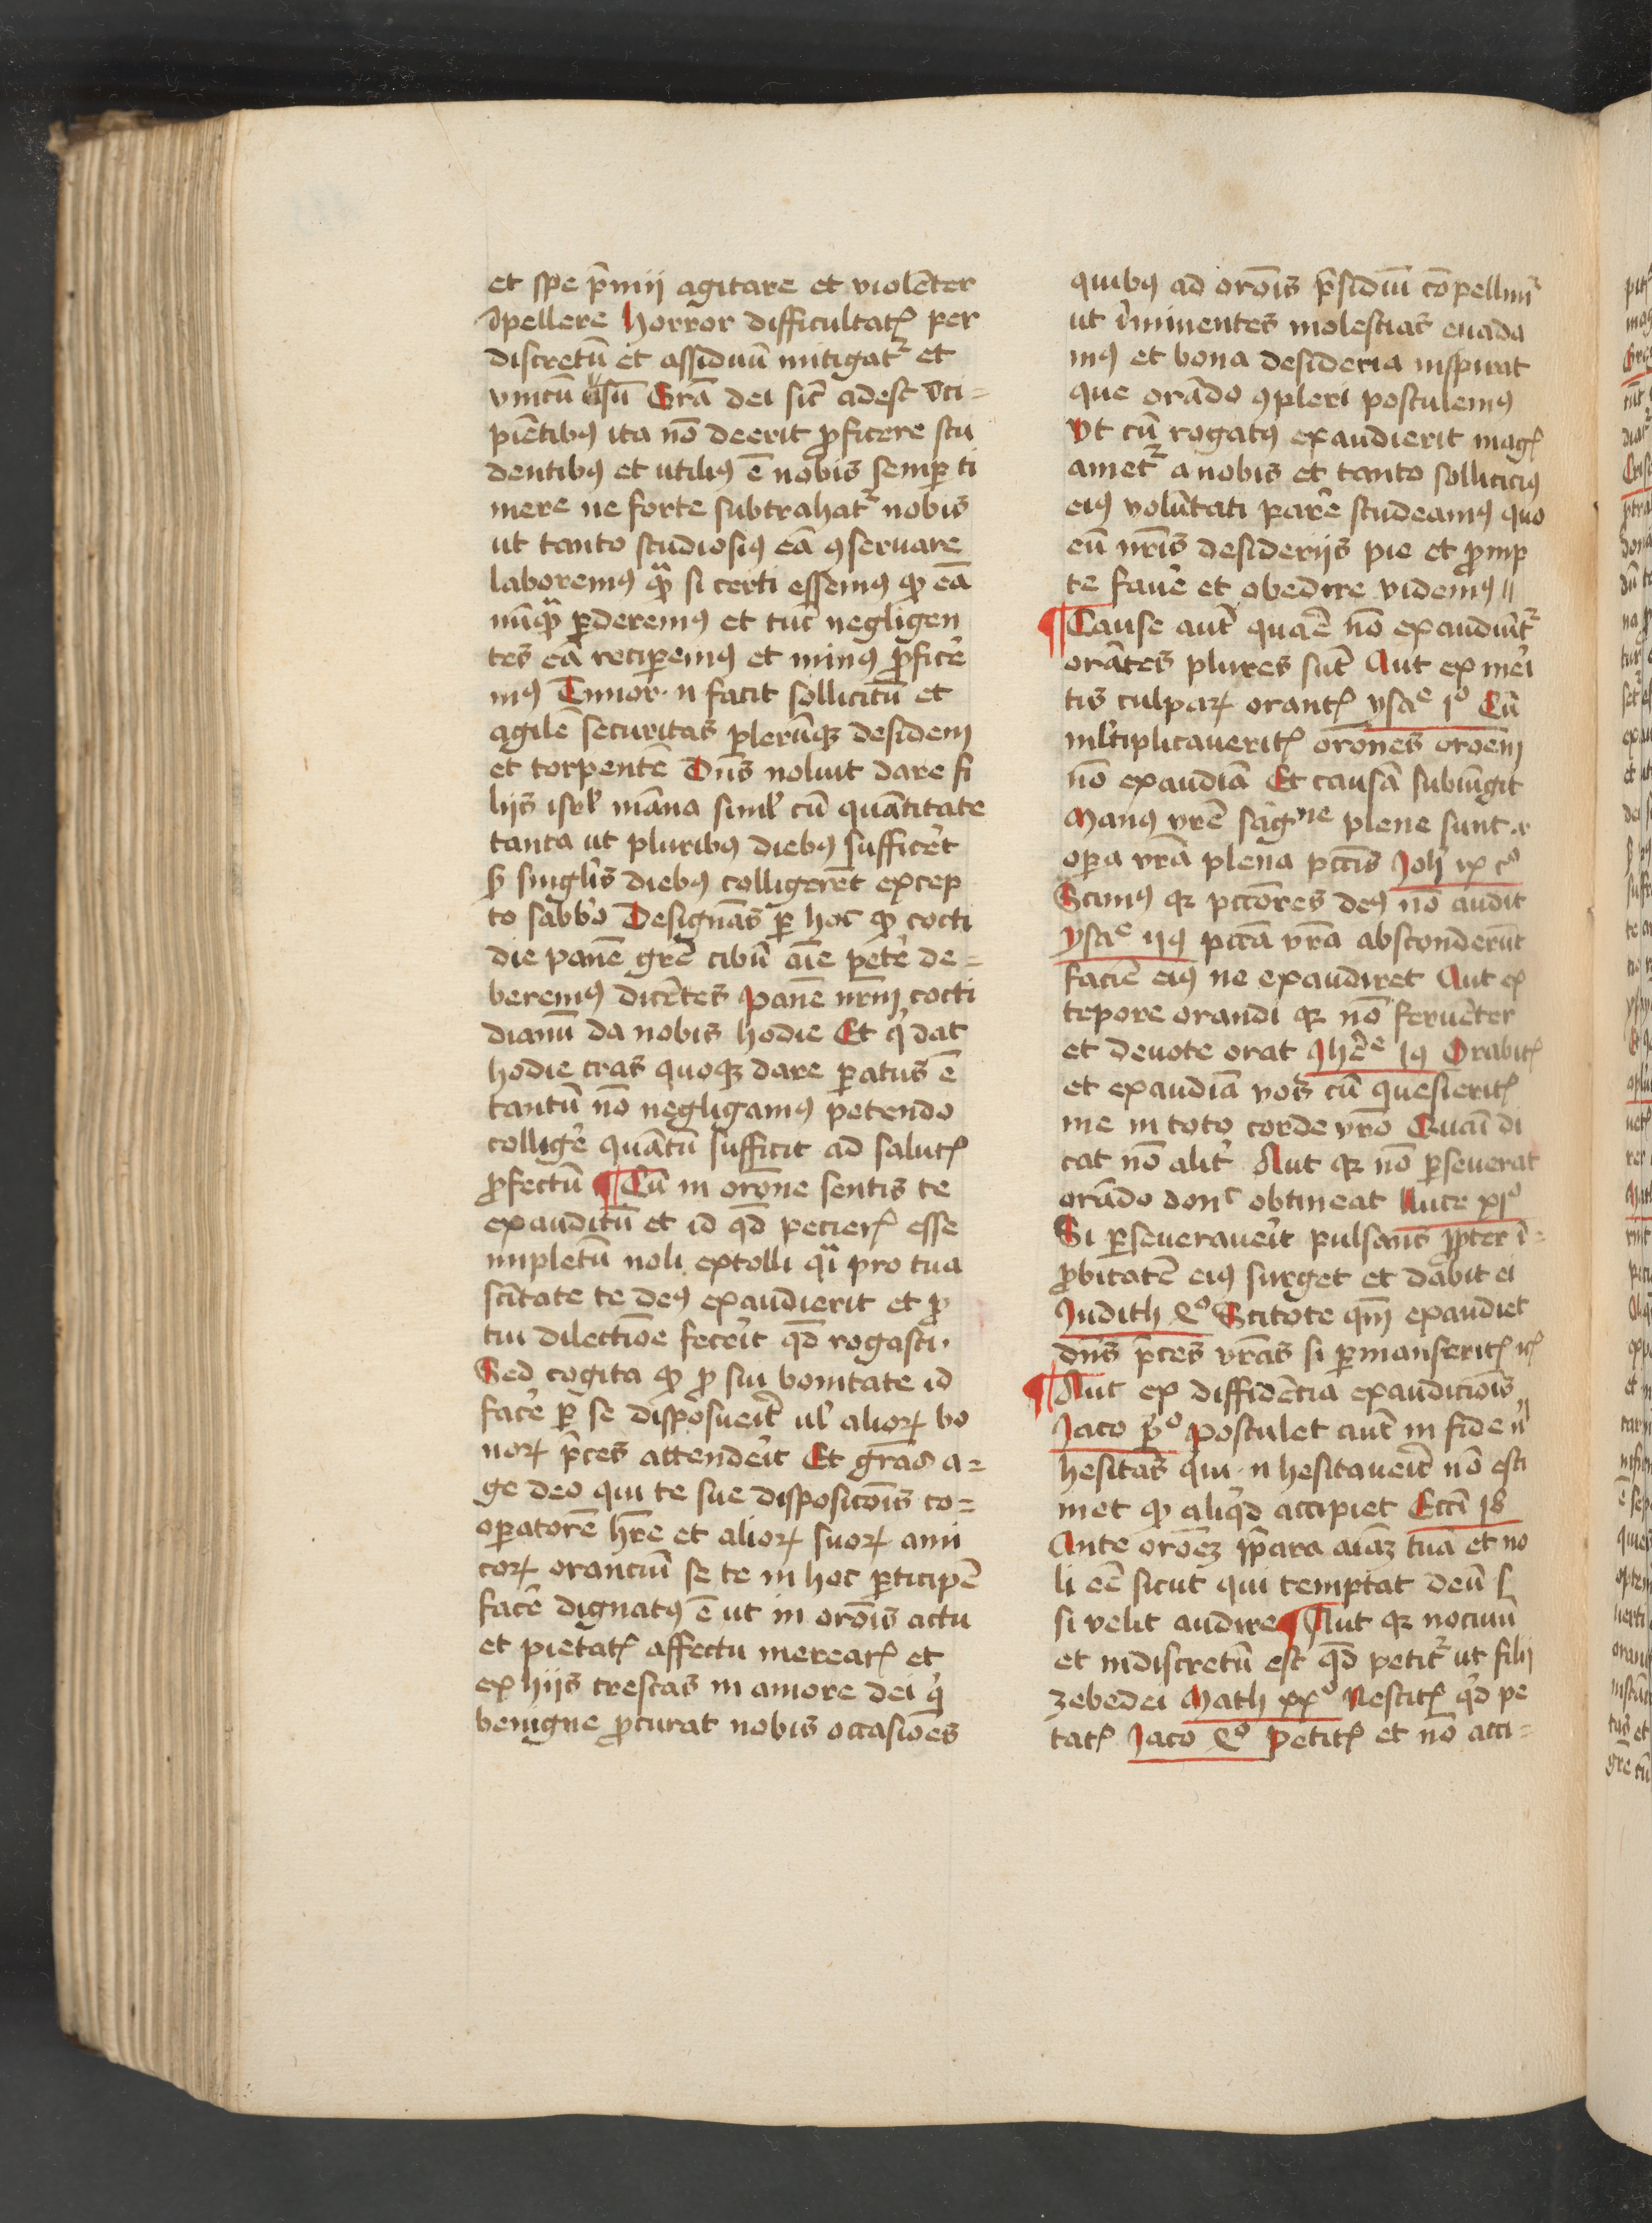 et spe p̄mij agitare et violēter
īpellere Horror difficultatꝭ per
discretū et assiduū mitigatᷣ et
vnicū vsū Grā dei sic̄ adest īci=
piētibꝯ ita nō deerit ꝓficere stu
dentibꝯ et utiliꝯ ē nobis semꝑ ti
mere ne forte subtrahatᷣ nobis
ut tanto studiosiꝯ eā ꝯseruare
laboremꝯ qᷓꝫ si certi essemꝯ ꝙ eā
nūqᷓꝫ ꝑderemꝯ et tūc negligen
tes eā reciꝑemꝯ et minꝯ ꝓficē
mꝯ Timor .n. facit sollicitū et
agilē securitas ꝑlerūqꝫ desidem
et torpentē Dn̄s noluit dare fi
lijs isrl̓ māna siml̓ cū quātitate
tanta ut pluribꝯ diebꝯ sufficēt
sꝫ singl̓is diebꝯ colligerēt excep
to sabb̓o Designās ꝑ hoc ꝙ cocti
die panē grē cibū aīe petē de=
beremꝯ dicētes Panē nr̄m cocti
dianū da nobis hodie Et qͥ dat
hodie cras quoqꝫ dare ꝑatus ē
tantū nō negligamꝯ petendo
colligē quātū sufficit ad salutꝭ
ꝓfectū ¶ Cū in orōne sentis te
exauditū et id qd̄ pecierꝭ esse
impletū noli extolli qͣi pro tua
sc̄itate te deꝯ exaudierit et ꝓ
tui dilectiōe fecēit qd̄ rogasti.
Sed cogita ꝙ ꝓ sui bonitate id
facē ꝑ se disposuēit ul̓ alioꝝ bo
noꝝ p̄ces attendēit Et grās a=
ge deo qui te sue dispositōis co=
oꝑatorē hr̄e et alioꝝ suoꝝ ami
coꝝ oranciū se te in hoc ꝑticipē
facē dignatꝯ ē ut in orōis actu
et pietatꝭ affectu merearꝭ et
ex hijs crescas in amore dei qͥ
benigne ꝓcurat nobis occasiōes
quibꝯ ad orōis p̄sidiū cōpellimᷣ
ut īminentes molestias euada
mꝯ et bona desideria inspirat
que orādo ꝯpleri postulemꝯ
Vt cū rogatꝯ exaudierit magꝭ
ametᷣ a nobis et tanto solliciciꝯ
eiꝯ volūtati parē studeamꝯ quo
eū nr̄is desiderijs pie et ꝓmp
te favē et obedire videmꝯ //
¶ Cause aut̄ quaē nō exaudiūtᷣ
orātes plures sūt Aut ex mēi
tis culpaꝝ orantꝭ ysaᵉ iº Cū
ml̓tiplicaueritꝭ orōnes oroēm
nō exaudiā Et causā subiūgit
Manꝯ vr̄ē sāgⁿᵉ plene sunt ⁊
oꝑa vr̄a plena pctīs Joh̄ ix cº
Scimꝯ qꝛ pctōres deꝯ nō audit
ysaᵉ pctā vr̄a absconderūt
faciē eiꝯ ne exaudiret Aut ex
tepore orandi qꝛ nō feruēter
et deuote orat Jhēᵉ Orabitꝭ
et exaudiā vos cū quesieritꝭ
me in toto corde vr̄o Quāi di
cat nō alit̓ Aut qꝛ nō ꝑseuerat
orādo donᶜ obtineat luce xiº
Si ꝑseueraueīt pulsans ꝓpter ī=
ꝓbitatē eiꝯ surget et dabit ei
Judith Scitote qm̄ exaudiet
dn̄s p̄ces vr̄as si ꝑmanseritꝭ ⁊cꝭ
¶ Aut ex diffidētia exauditiōis
Jaco pº postulet aut̄ in fide n̄
hesitās qui .n. hesitaueīt nō esti
met ꝙ aliqͥd accipiet Ecc̄i 18
Ante oroēꝫ p̄para aiāꝫ tuā et no
li eē sicut qui temptat deū s
si velit audire ¶ Aut qꝛ nociuū
et indiscretū est qd̄ petitᷣ ut filij
zebedei Math xxº Nescitꝭ qͥd pe
tatꝭ Jaco Petitꝭ et nō acci=